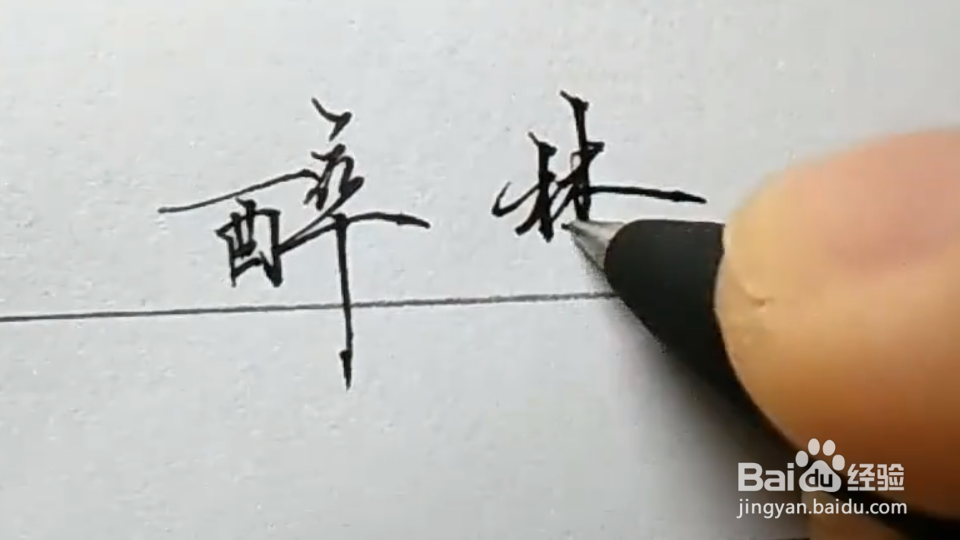 醉林
Baidu经验
jingyan.baidu.com